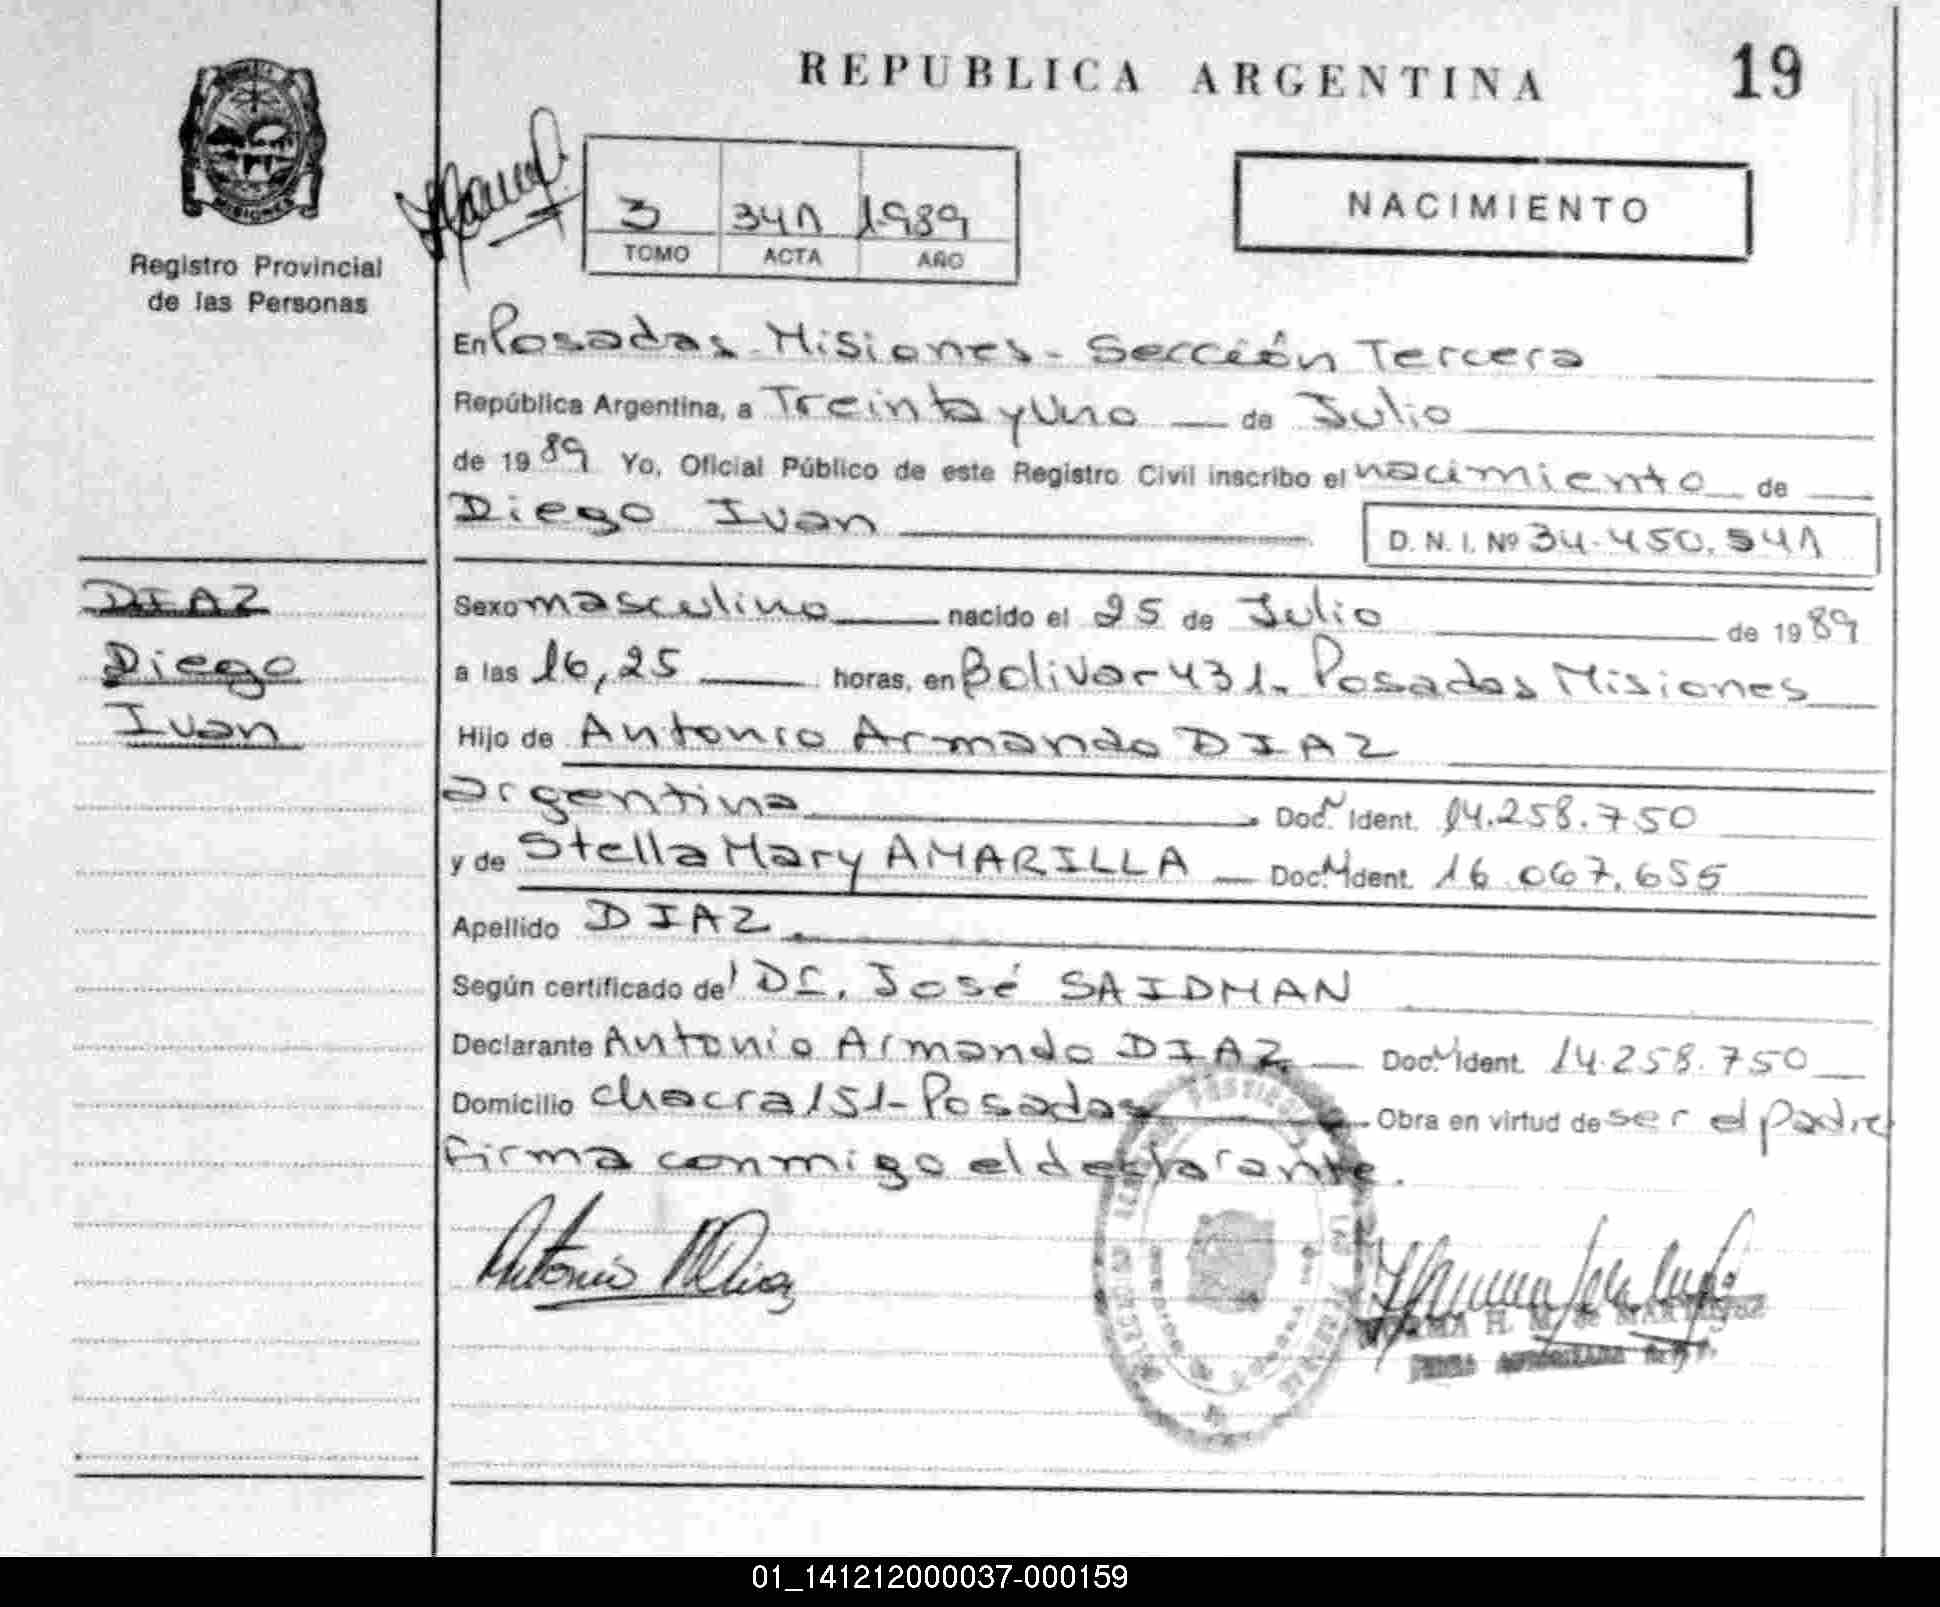 REPUBLICA ARGENTINA
19
MISIONES
Registro Provincial
de las Personas
3 341 1989
TOMO ACTA AÑO
NACIMIENTO
En Posadas - Misiones - Sección Tercera
República Argentina, a Treinta y Uno de Julio
de 1989 Yo, Oficial Público de este Registro Civil inscribo el nacimiento de
Diego Ivan
D. N. I. Nº 34.450.541
DIAZ
Diego
Ivan
Sexo masculino nacido el 25 de Julio de 1989
a las 16,25 horas, en Bolivar 431 - Posadas Misiones
Hijo de Antonio Armando DIAZ
argentina Doc. N Ident. 14.258.750
y de Stella Mary AMARILLA Doc. N Ident. 16.067.655
Apellido DIAZ
Según certificado del Dr. José SAIDMAN
Declarante Antonio Armando DIAZ Doc. N Ident. 14.258.750
Domicilio chacra 151 - Posadas Obra en virtud de ser el padre
firma conmigo el declarante.
Antonio A Diaz
01_141212000037-000159